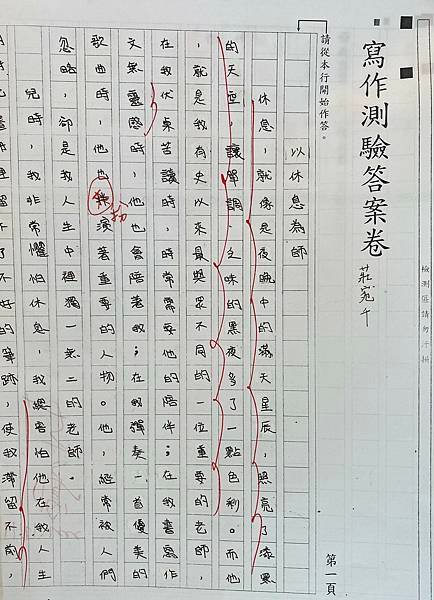 檢測區請勿汙損
寫作測驗答案卷
請從本行開始作答。
第一頁
以休息為師
休息,就像是夜晚中的滿天星辰,照亮了漆黑
的天空,讓單調、乏味的黑夜多了一點色彩。而他
,就是我有史以來最與眾不同的一位重要的老師,
在我伏案苦讀時,常需要他的陪伴;在我書寫作
文無靈感時,他也會陪著我;在我彈奏一首優美的
歌曲時,他也演著重要的人物。他,經常被人們
扮
忽略,卻是我人生中裡獨一無二的老師。
兒時,我非常懼怕休息,我總害怕他在我人生
不好的筆跡,使我滯留不前,